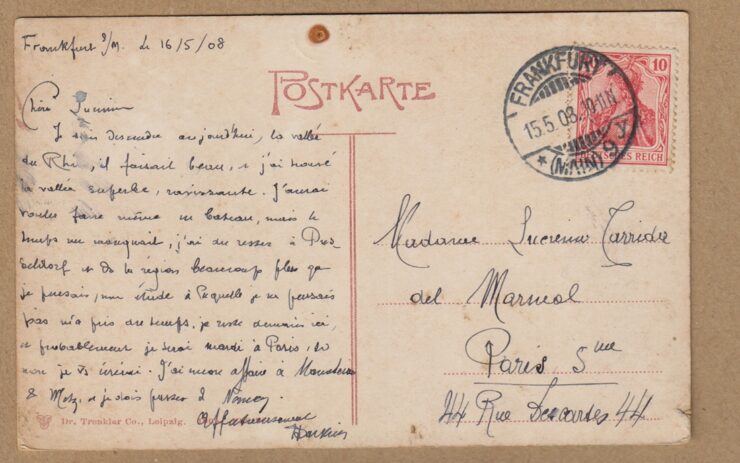 Frankfurt s/M. le 16/5/08
POSTKARTE
FRANKFURT
15.5.08. 10-11N.
* (MAIN) 9 y
10
DEUTSCHES REICH
Chère Lucienne
Je suis descendu aujourd'hui, la vallée
du Rhin, il faisait beau, et j'ai trouvé
la vallée superbe, ravissante. J'aurai
voulu faire même en bateau, mais le
temps me manquait, j'ai du rester à Dus
seldorf et de la région beaucoup plus que
je pensais, une étude à laquelle je ne pensais
pas m'a pris du temps. je reste demain ici,
et probablement je serai mardi à Paris,
non je t'écrirai. J'ai encore affaire à
& Metz et je dois passer à Nancy
Affectueusement
Dr. Trenkler Co., Leipzig.
Madame Lucienne Tarrida
del Marmol
Paris 5me
44 Rue Descartes 44